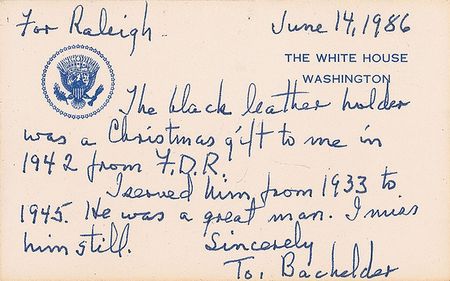 For Raleigh
June 14, 1986
THE WHITE HOUSE
WASHINGTON
The black leather holder
was a Christmas gift to me in
1942 from F.D.R.
I served him from 1933 to
1945. He was a great man. I miss
him still. Sincerely
Toi Bachelder